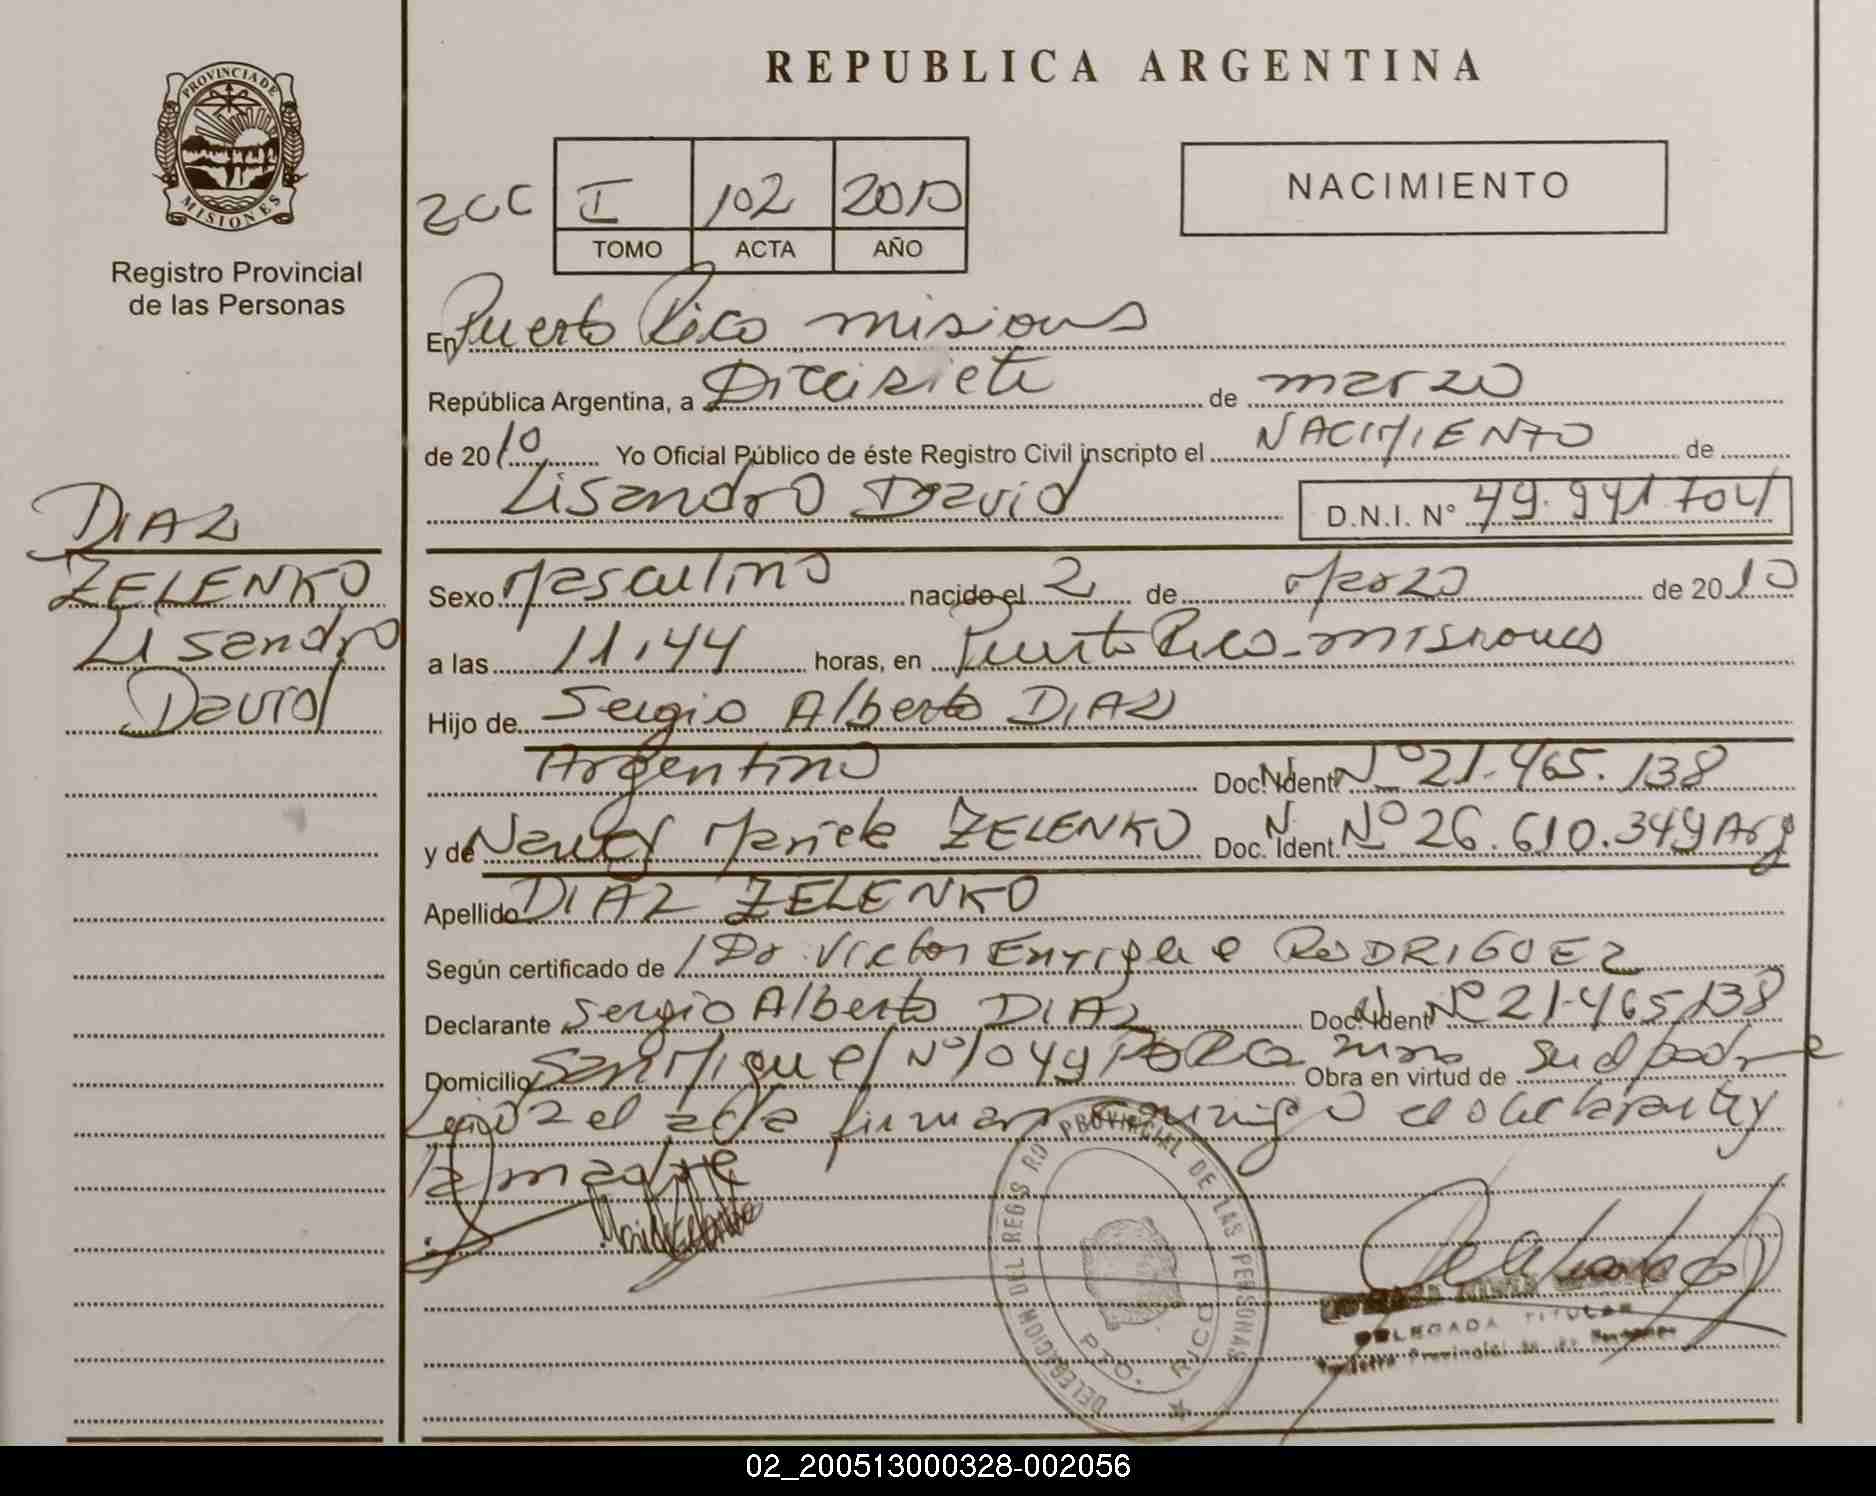 REPUBLICA ARGENTINA
PROVINCIA DE
MISIONES
Registro Provincial
de las Personas
DIAZ
ZELENKO
Lisandro
David
NACIMIENTO
I 102 2010
TOMO ACTA AÑO
En Puerto Rico misiones
República Argentina, a Diecisiete de marzo
de 2010 Yo Oficial Público de éste Registro Civil inscripto el NACIMIENTO de
Lisandro David D.N.I. N° 49.941.704
Sexo Masculino nacido el 2 de Marzo de 2010
a las 11,44 horas, en Puerto Rico-misiones
Hijo de Sergio Alberto DIAZ
Argentino Doc. N. Ident. N° 21.465.138
y de Nancy Mariela ZELENKO Doc. N. Ident. N° 26.610.349 Arg
Apellido DIAZ ZELENKO
Según certificado de Dr. Victor Enrique RODRIGUEZ
Declarante Sergio Alberto DIAZ Doc. N. Ident. N° 21.465.138
Domicilio San Miguel N° 1049 Obra en virtud de su el padre
Leida el acta firman conmigo el declarante y
la madre
DELEGACION DEL REGISTRO PROVINCIAL DE LAS PERSONAS
PTO. RICO
DELEGADA TITULAR
Provincial de las Personas
02_200513000328-002056